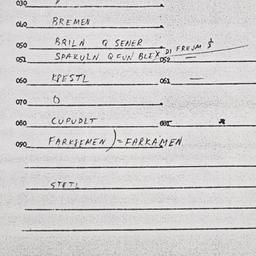 030
040 BREMEN
050 BRILN Q SENER
051 SPAKULN Q FUN BLEX 052 DI FREJM 5
060 KPESTL 061 —
070 O
080 CUPUDLT
090 FARKREMEN ) = FARKAMEN
STETL